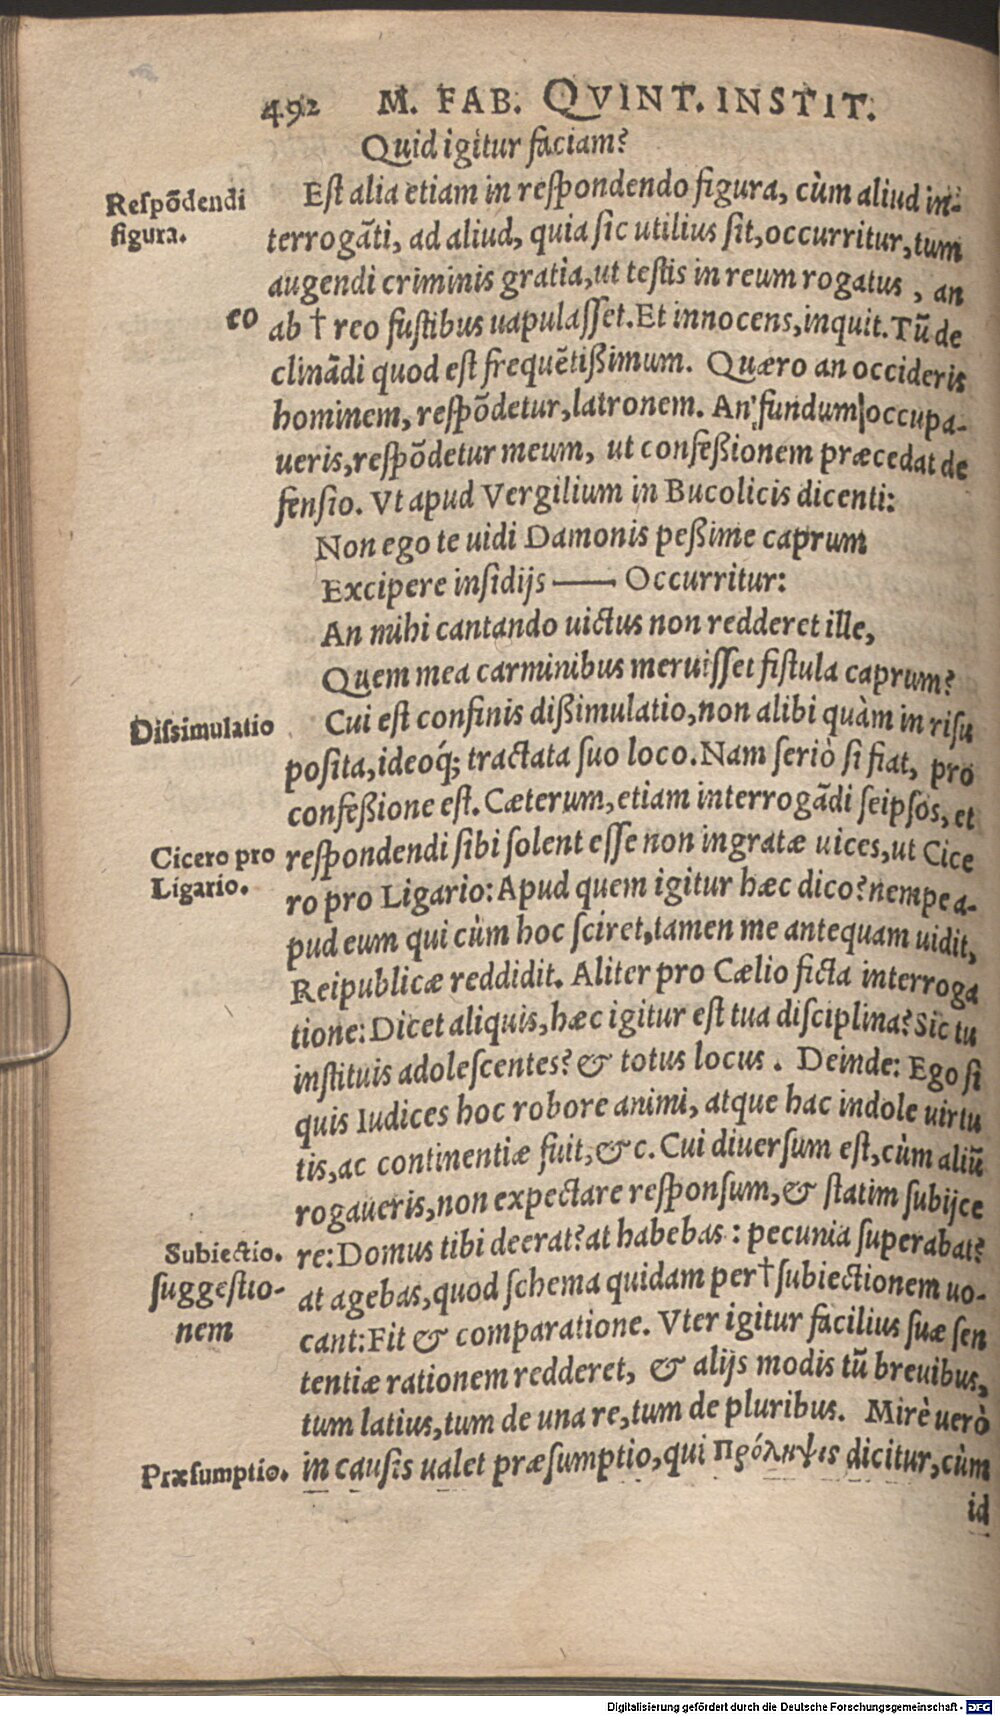 492 M. FAB. QVINT. INSTIT.
Quid igitur faciam?
Respõdendi
figura.
Est alia etiam in respondendo figura, cùm aliud in-
terrogãti, ad aliud, quia sic utilius sit, occurritur, tum
augendi criminis gratia, ut testis in reum rogatus, an
eo
ab † reo fustibus uapulasset. Et innocens, inquit. Tũ de
clinãdi quod est frequẽtißimum. Quæro an occideris
hominem, respõdetur, latronem. An fundum occupa-
ueris, respõdetur meum, ut confeßionem præcedat de
fensio. Vt apud Vergilium in Bucolicis dicenti:
Non ego te uidi Damonis peßime caprum
Excipere insidijs —— Occurritur:
An mihi cantando uictus non redderet ille,
Quem mea carminibus meruisset fistula caprum?
Dissimulatio
Cui est confinis dißimulatio, non alibi quàm in risu
posita, ideoq́; tractata suo loco. Nam seriò si fiat, pro
confeßione est. Cæterum, etiam interrogãdi seipsos, et
Cicero pro
Ligario.
respondendi sibi solent esse non ingratæ uices, ut Cice
ro pro Ligario: Apud quem igitur hæc dico? nempe a-
pud eum qui cùm hoc sciret, tamen me antequam uidit,
Reipublicæ reddidit. Aliter pro Cælio ficta interroga
tione: Dicet aliquis, hæc igitur est tua disciplina? Sic tu
instituis adolescentes? & totus locus. Deinde: Ego si
quis Iudices hoc robore animi, atque hac indole uirtu
tis, ac continentiæ fuit, &c. Cui diuersum est, cùm aliũ
rogaueris, non expectare responsum, & statim subijce
Subiectio.
re: Domus tibi deerat? at habebas: pecunia superabat?
suggestio-
nem
at agebas, quod schema quidam per † subiectionem uo-
cant: Fit & comparatione. Vter igitur facilius suæ sen
tentiæ rationem redderet, & alijs modis tũ breuibus,
tum latius, tum de una re, tum de pluribus. Mirè uerò
Præsumptio.
in causis ualet præsumptio, qui Πρόληψις dicitur, cùm
id
Digitalisierung gefördert durch die Deutsche Forschungsgemeinschaft - DFG